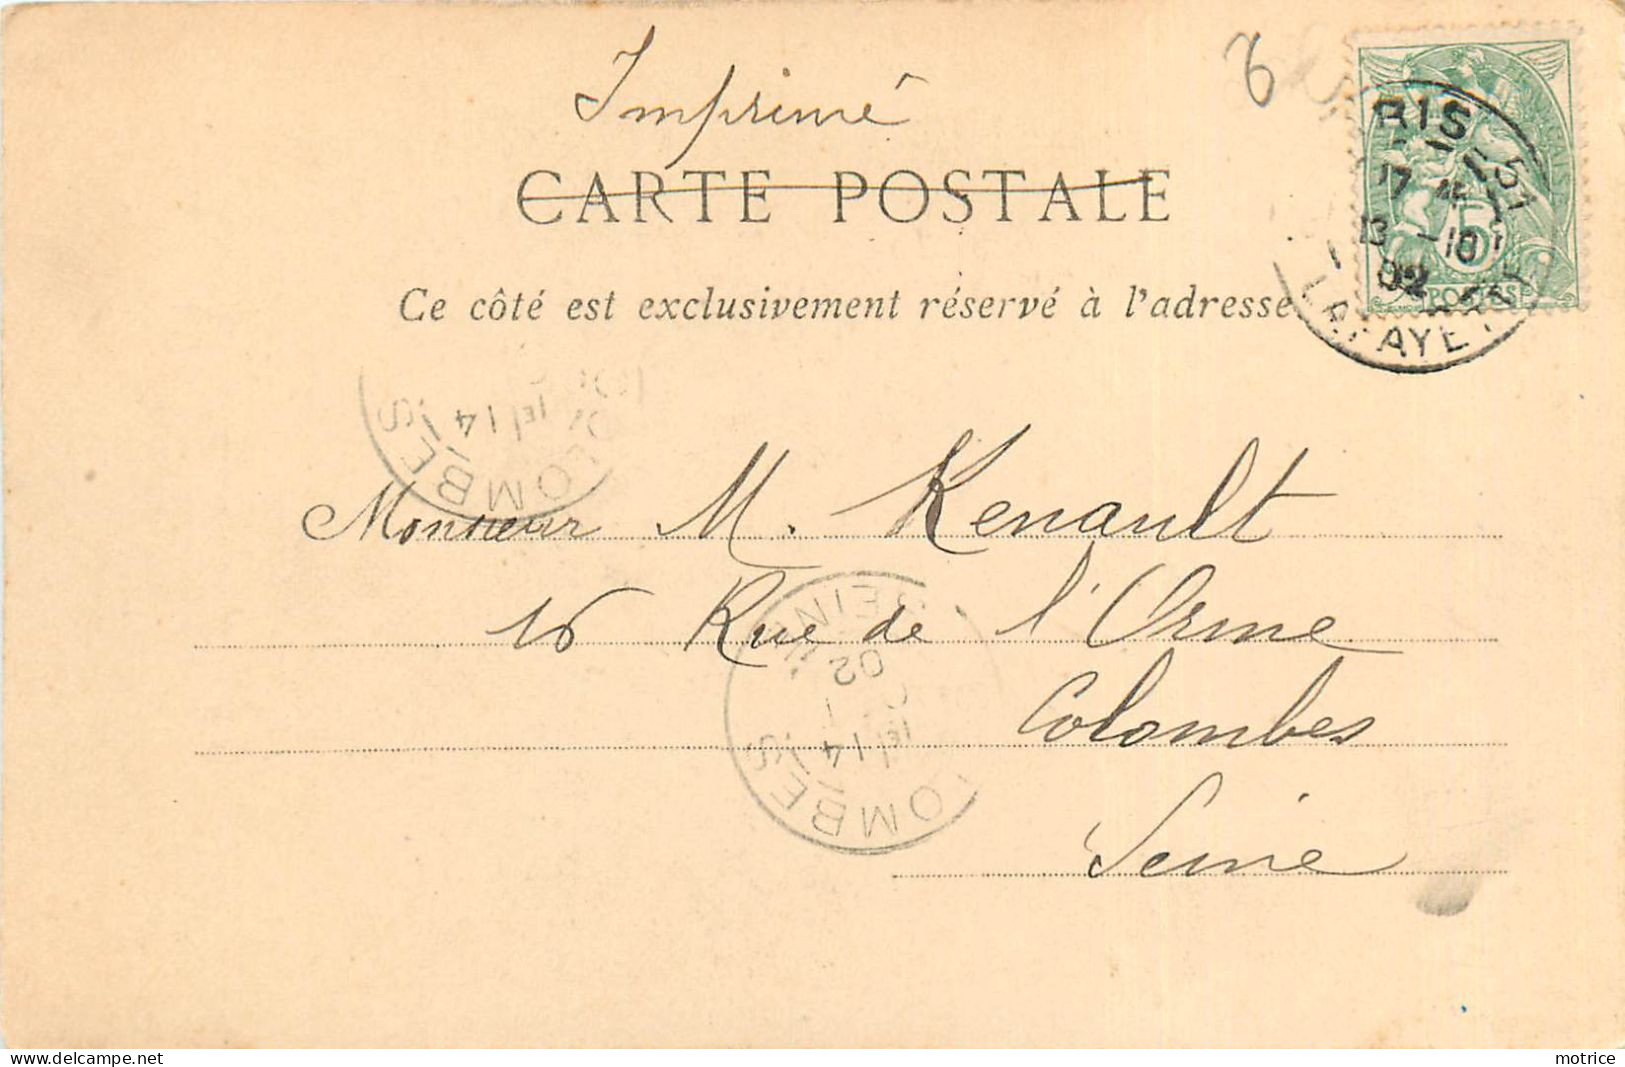 Imprimé
CARTE POSTALE
Ce côté est exclusivement réservé à l'adresse
RIS
17
13 -10
02
LAFAYET
5
POSTES
OMBES
1E/14
Monsieur M. Renault
16 Rue de l'Orme
Colombes
Seine
SEINE
02
1E/14
OMBES
delcampe.net
motrice